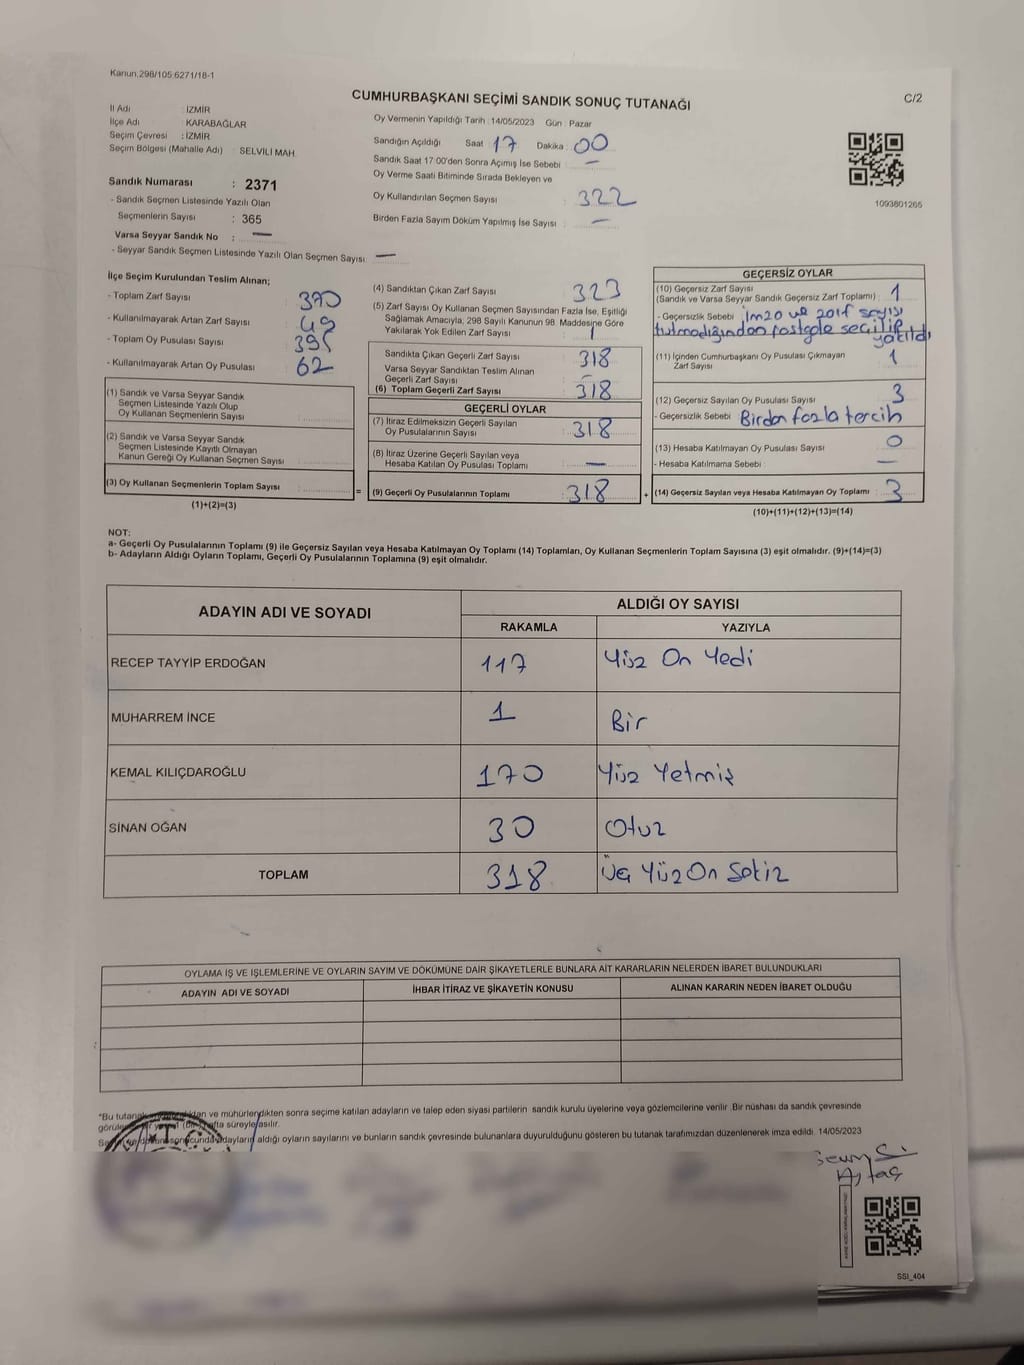 Kanun,298/105 6271/18-1
CUMHURBAŞKANI SEÇİMİ SANDIK SONUÇ TUTANAĞI
C/2
İl Adı : İZMİR
İlçe Adı : KARABAĞLAR
Seçim Çevresi : İZMİR
Seçim Bölgesi (Mahalle Adı) : SELVİLİ MAH.
Sandık Numarası : 2371
- Sandık Seçmen Listesinde Yazılı Olan
Seçmenlerin Sayısı : 365
Varsa Seyyar Sandık No : —
- Seyyar Sandık Seçmen Listesinde Yazılı Olan Seçmen Sayısı: —
Oy Vermenin Yapıldığı Tarih :14/05/2023 Gün : Pazar
Sandığın Açıldığı Saat : 17 Dakika : 00
Sandık Saat 17:00'den Sonra Açımış İse Sebebi : —
Oy Verme Saati Bitiminde Sırada Bekleyen ve
Oy Kullandırılan Seçmen Sayısı : 322
Birden Fazla Sayım Döküm Yapılmış İse Sayısı : —
1093601265
İlçe Seçim Kurulundan Teslim Alınan;
- Toplam Zarf Sayısı : 370
- Kullanılmayarak Artan Zarf Sayısı : 49
- Toplam Oy Pusulası Sayısı : 395
- Kullanılmayarak Artan Oy Pusulası : 62
(1) Sandık ve Varsa Seyyar Sandık
Seçmen Listesinde Yazılı Olup
Oy Kullanan Seçmenlerin Sayısı :
(2) Sandık ve Varsa Seyyar Sandık
Seçmen Listesinde Kayıtlı Olmayan
Kanun Gereği Oy Kullanan Seçmen Sayısı :
(3) Oy Kullanan Seçmenlerin Toplam Sayısı :
(1)+(2)=(3)
(4) Sandıktan Çıkan Zarf Sayısı : 323
(5) Zarf Sayısı Oy Kullanan Seçmen Sayısından Fazla İse, Eşitliği
Sağlamak Amacıyla, 298 Sayılı Kanunun 98. Maddesine Göre
Yakılarak Yok Edilen Zarf Sayısı : 1
Sandıkta Çıkan Geçerli Zarf Sayısı : 318
Varsa Seyyar Sandıktan Teslim Alınan
Geçerli Zarf Sayısı : —
(6) Toplam Geçerli Zarf Sayısı : 318
GEÇERLİ OYLAR
(7) İtiraz Edilmeksizin Geçerli Sayılan
Oy Pusulalarının Sayısı : 318
(8) İtiraz Üzerine Geçerli Sayılan veya
Hesaba Katılan Oy Pusulası Toplamı : —
= (9) Geçerli Oy Pusulalarının Toplamı : 318
GEÇERSİZ OYLAR
(10) Geçersiz Zarf Sayısı
(Sandık ve Varsa Seyyar Sandık Geçersiz Zarf Toplamı) : 1
- Geçersizlik Sebebi : İmza ve zarf sayısı
tutmadığından rastgele seçilip
yakıldı
(11) İçinden Cumhurbaşkanı Oy Pusulası Çıkmayan
Zarf Sayısı : 1
(12) Geçersiz Sayılan Oy Pusulası Sayısı : 3
- Geçersizlik Sebebi : Birden fazla tercih
(13) Hesaba Katılmayan Oy Pusulası Sayısı : 0
- Hesaba Katılmama Sebebi : —
+ (14) Geçersiz Sayılan veya Hesaba Katılmayan Oy Toplamı : 3
(10)+(11)+(12)+(13)=(14)
NOT:
a- Geçerli Oy Pusulalarının Toplamı (9) ile Geçersiz Sayılan veya Hesaba Katılmayan Oy Toplamı (14) Toplamları, Oy Kullanan Seçmenlerin Toplam Sayısına (3) eşit olmalıdır. (9)+(14)=(3)
b- Adayların Aldığı Oyların Toplamı, Geçerli Oy Pusulalarının Toplamına (9) eşit olmalıdır.
ADAYIN ADI VE SOYADI
ALDIĞI OY SAYISI
RAKAMLA YAZIYLA
RECEP TAYYİP ERDOĞAN 117 Yüz On Yedi
MUHARREM İNCE 1 Bir
KEMAL KILIÇDAROĞLU 170 Yüz Yetmiş
SİNAN OĞAN 30 Otuz
TOPLAM 318 Üç Yüz On Sekiz
OYLAMA İŞ VE İŞLEMLERİNE VE OYLARIN SAYIM VE DÖKÜMÜNE DAİR ŞİKAYETLERLE BUNLARA AİT KARARLARIN NELERDEN İBARET BULUNDUKLARI
ADAYIN ADI VE SOYADI İHBAR İTİRAZ VE ŞİKAYETİN KONUSU ALINAN KARARIN NEDEN İBARET OLDUĞU
*Bu tutanak ve mühürlendikten sonra seçime katılan adayların ve talep eden siyasi partilerin sandık kurulu üyelerine veya gözlemcilerine verilir. Bir nüshası da sandık çevresinde
hafta süreyle asılır.
adayların aldığı oyların sayılarını ve bunların sandık çevresinde bulunanlara duyurulduğunu gösteren bu tutanak tarafımızdan düzenlenerek imza edildi. 14/05/2023
T.C.
Aytaç
SSI_404